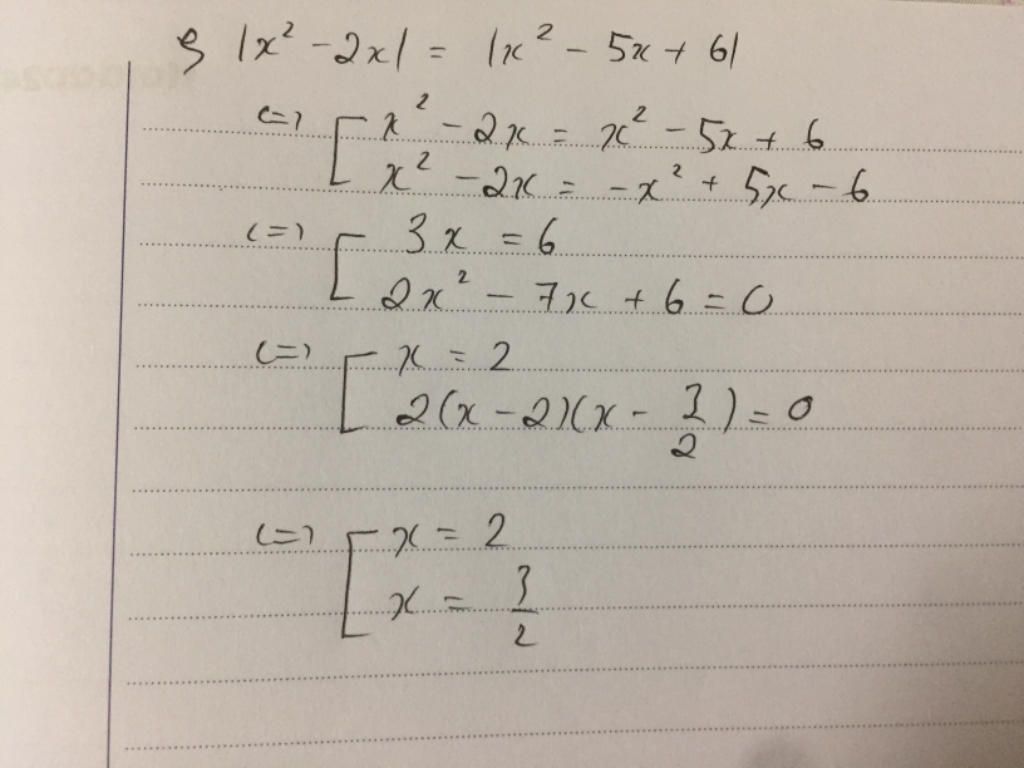 g |x² - 2x| = |x² - 5x + 6|
<=> [ x² - 2x = x² - 5x + 6
x² - 2x = -x² + 5x - 6
<=> [ 3x = 6
2x² - 7x + 6 = 0
<=> [ x = 2
2(x - 2)(x - 3/2) = 0
<=> [ x = 2
x = 3/2